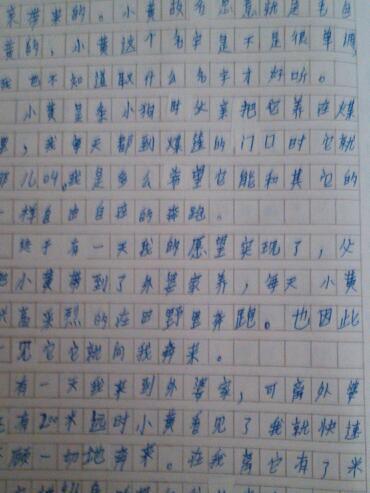 的。小黄的名
黄的，小黄这个名字是不是很单调
我也不知道取什么名字才好听。
小黄是条小狗时父亲把它养在煤
，我每天都到煤的门口时它就
儿叫，我是多么希望它能和其它的
一样自由自在的奔跑。
终于有一天我的愿望实现了，父
小黄带到了外婆家养，每天小黄
高采烈的在田野里奔跑。也因此
见它它就向我奔来。
有一天我来到外婆家，可离外婆
有200米远时小黄看见了我就快速
顾一切地奔来。在我离它有了米